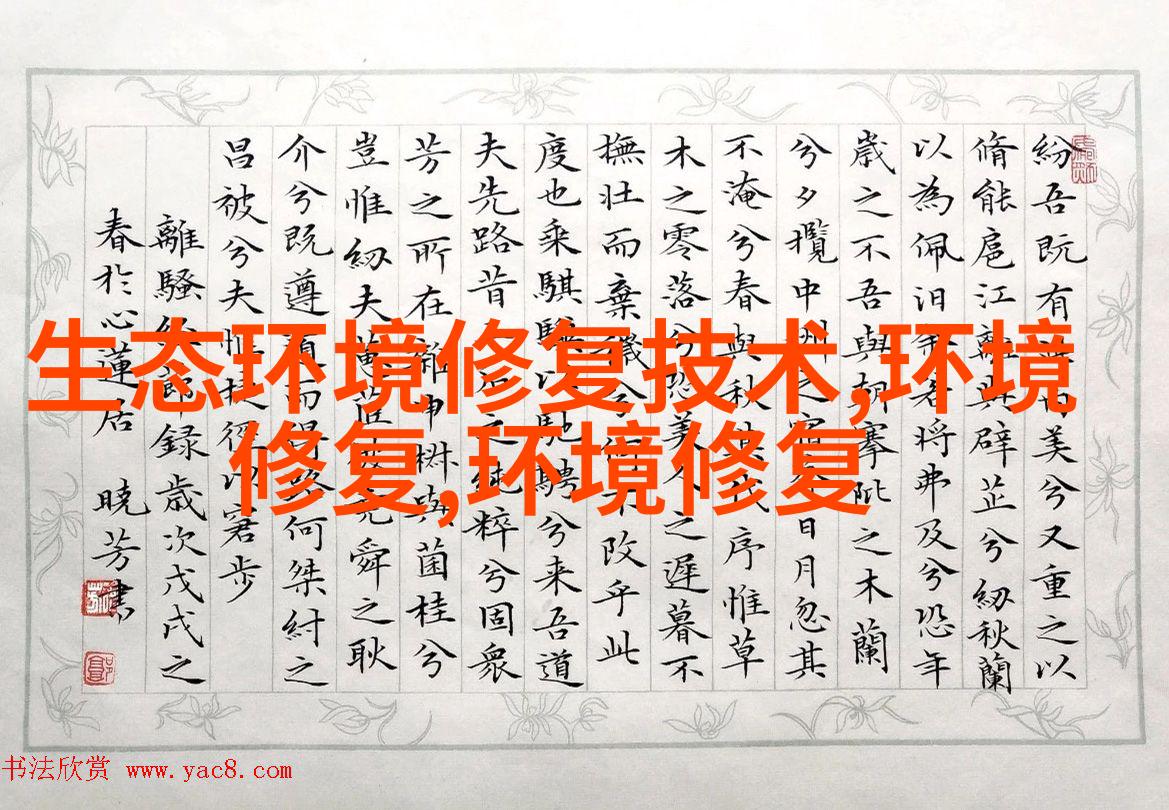 生态环境修复技术,环境
修复,环境修复
紛吾既有美兮又重之以
脩能扈江離與辟芷兮紉秋蘭
以為佩汩余若將弗及兮恐年
歲之不吾與朝搴阰之木蘭
兮夕攬中州之宿日月忽其
不淹兮春與秋其代序惟草
木之零落兮恐美人之遲暮不
撫壯而棄穢兮不改乎此
度也乘騏驥以馳騁兮来吾道
夫先路昔之純粹兮固衆
芳之所在雜申椒與菌桂兮
豈惟紉夫蕙茝彼堯舜之耿
介兮既遵道而得路何桀紂之
昌被兮夫惟捷徑以窘步
離騷節錄歲次戊戌之
春於心蓮居 曉芳書
书法欣赏 www.yac8.com